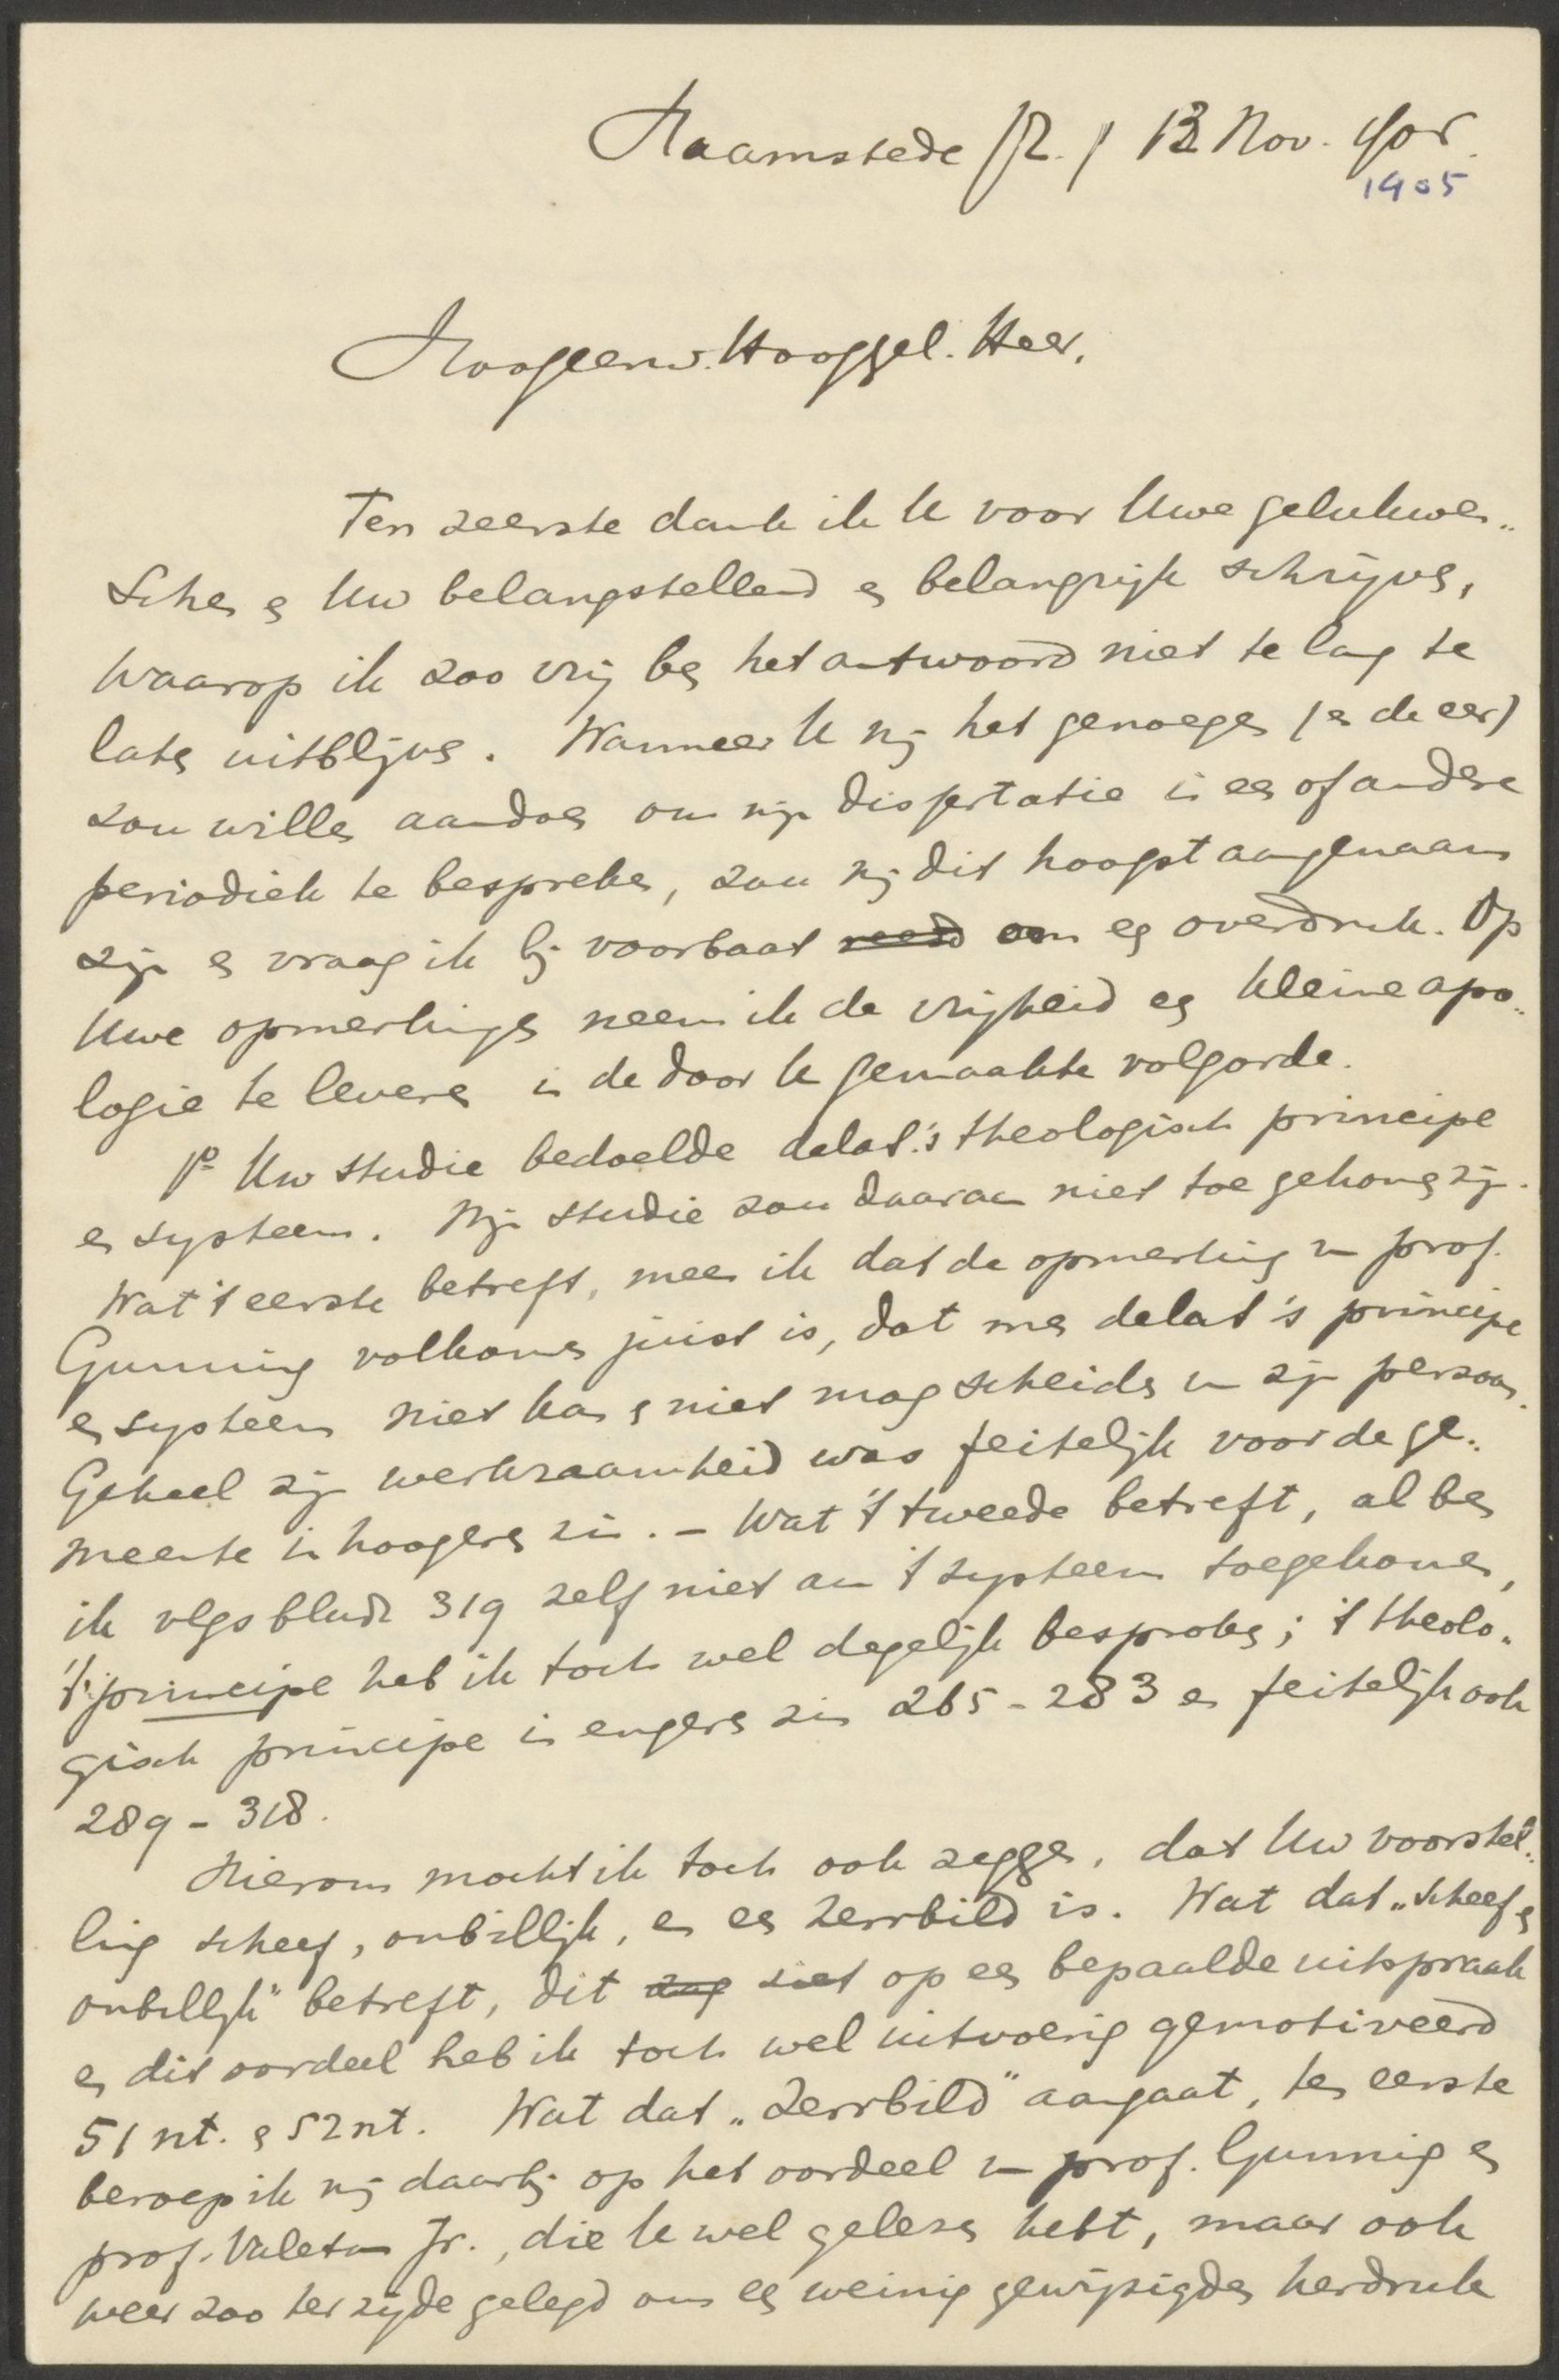 Haamstede (Z.) 13 Nov. 1905.
1905
Hoogeerw. Hooggel. Heer,
Ten zeerste dank ik U voor Uwe gelukwen-
schen en Uw belangstellend en belangrijk schrijven,
waarop ik zoo vrij ben het antwoord niet te lang te
laten uitblijven. Wanneer U mij het genoegen (en de eer)
zou willen aandoen om mijn dissertatie in een of andere
periodiek te bespreken, zou mij dit hoogst aangenaam
zijn en vraag ik bij voorbaat reeds om een overdruk. Op
Uwe opmerkingen neem ik de vrijheid een kleine apo-
logie te leveren in de door U gemaakte volgorde.
1o Uw studie bedoelde delaS.'s theologisch principe
en systeem. Mijn studie zou daaraan niet toe gekomen zijn.
Wat 't eerste betreft, meen ik dat de opmerking van prof.
Gunning volkomen juist is, dat men delaS's principe
en systeem niet kan en niet mag scheiden van zijn persoon.
Geheel zijn werkzaamheid was feitelijk voor de ge-
meente in hoogeren zin. - Wat 't tweede betreft, al ben
ik vlgs bladz 319 zelf niet aan 't systeem toegekomen,
't principe heb ik toch wel degelijk besproken; 't theolo-
gisch principe in engeren zin 265-283 en feitelijk ook
289-318.
Hierom mocht ik toch ook zeggen, dat Uw voorstel-
ling scheef, onbillijk, en een Zerrbild is. Wat dat "scheef en
onbillijk" betreft, dit ziet op een bepaalde uitspraak
en dit oordeel heb ik toch wel uitvoerig gemotiveerd
51 nt. en 52 nt. Wat dat "Zerrbild" aangaat, ten eerste
beroep ik mij daarbij op het oordeel van prof. Gunning en
prof. Valeton Jr., die U wel gelezen hebt, maar ook
weer zoo ter zijde gelegd om een weinig gewijzigden herdruk